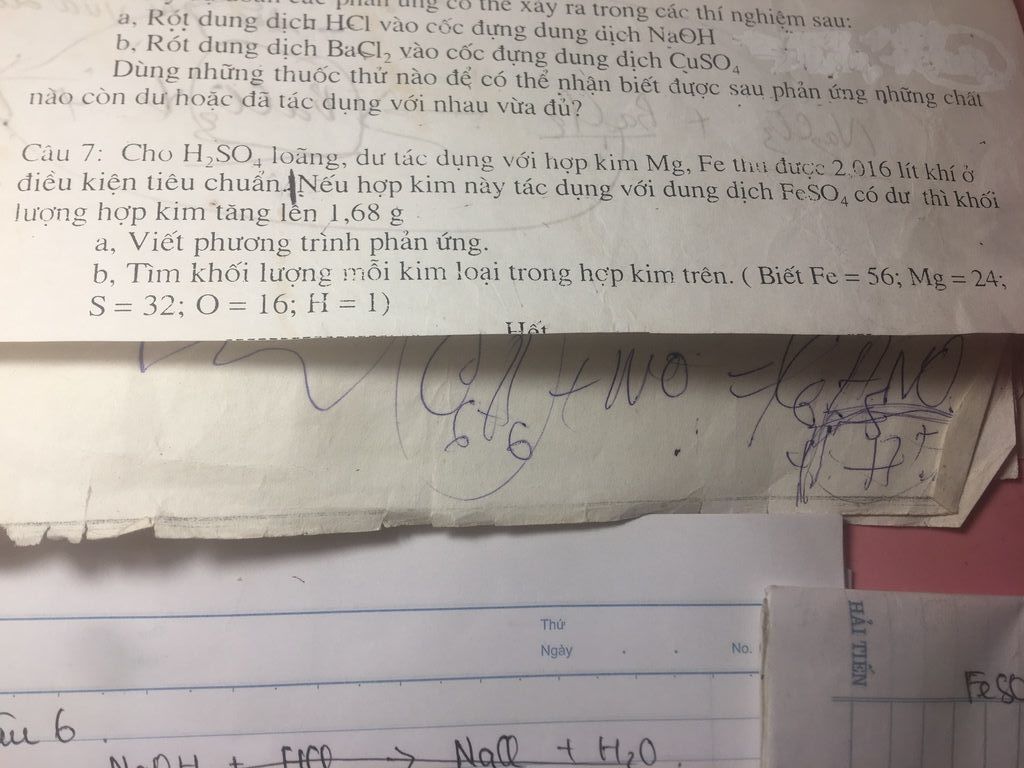 các phản ứng có thể xảy ra trong các thí nghiệm sau:
a, Rót dung dịch HCl vào cốc đựng dung dịch NaOH
b. Rót dung dịch BaCl₂ vào cốc đựng dung dịch CuSO₄
Dùng những thuốc thử nào để có thể nhận biết được sau phản ứng những chất
nào còn dư hoặc đã tác dụng với nhau vừa đủ?
Câu 7: Cho H₂SO₄ loãng, dư tác dụng với hợp kim Mg, Fe thu được 2,016 lít khí ở
điều kiện tiêu chuẩn. Nếu hợp kim này tác dụng với dung dịch FeSO₄ có dư thì khối
lượng hợp kim tăng lên 1,68 g
a, Viết phương trình phản ứng.
b, Tìm khối lượng mỗi kim loại trong hợp kim trên. ( Biết Fe = 56; Mg = 24;
S = 32; O = 16; H = 1)
Hết
Thứ
Ngày . . No.
HẢI TIẾN
FeSO
âu 6
NaOH + HCl → NaCl + H₂O